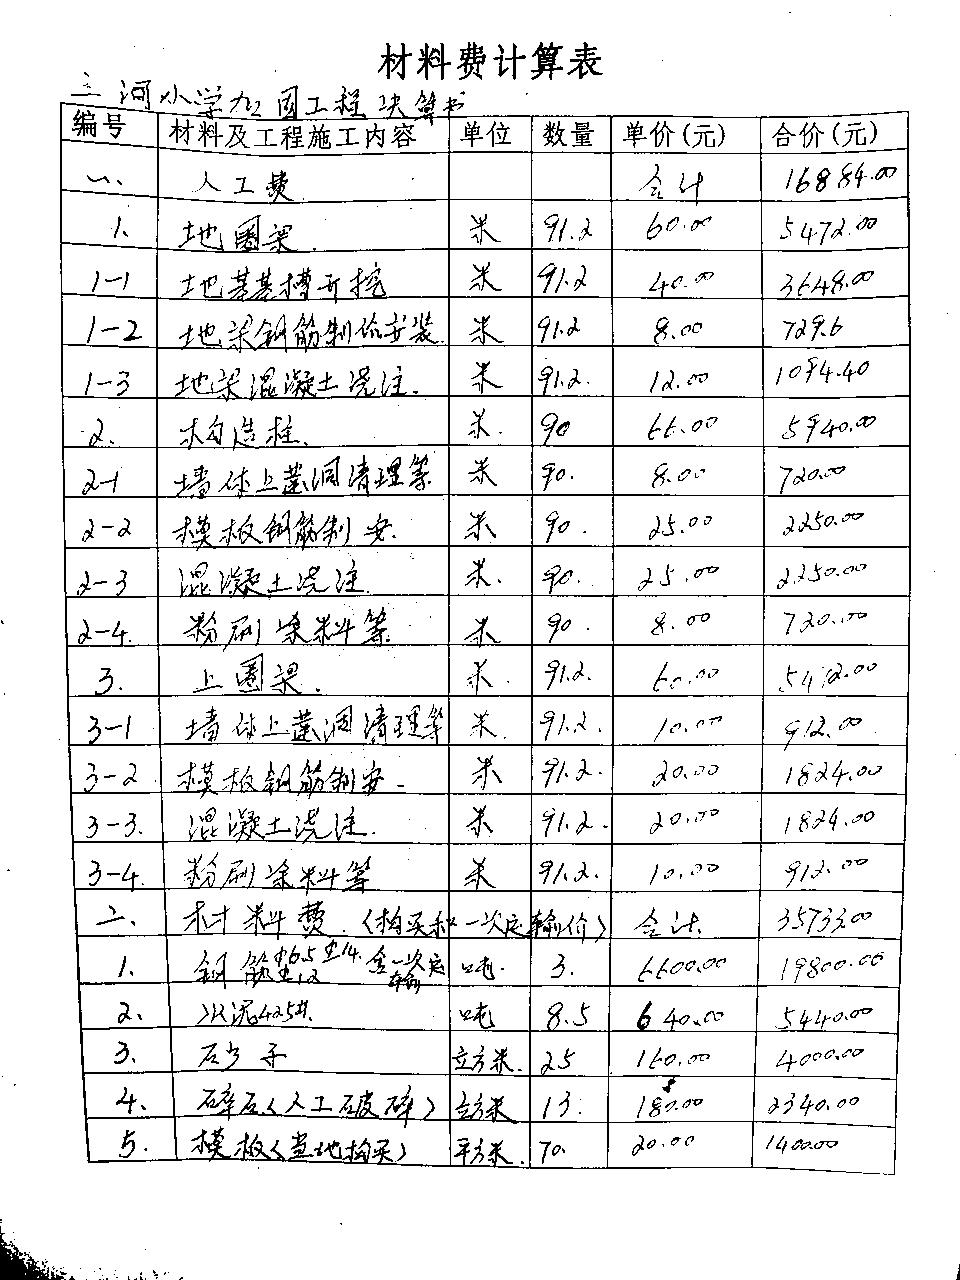 材料费计算表
三河小学加固工程决算书
编号 材料及工程施工内容 单位 数量 单价(元) 合价(元)
一、 人工费 合计 16884.00
1. 地圈梁. 米 91.2 60.00 5472.00
1-1 地基基槽开挖 米 91.2 40.00 3648.00
1-2 地梁钢筋制作安装 米 91.2 8.00 729.6
1-3 地梁混凝土浇注. 米 91.2. 12.00 1094.40
2. 构造柱. 米. 90 66.00 5940.00
2-1 墙体上凿洞清理等 米 90. 8.00 720.00
2-2 模板钢筋制安. 米 90. 25.00 2250.00
2-3 混凝土浇注. 米. 90. 25.00 2250.00
2-4. 粉刷涂料等. 米 90. 8.00 720.00
3. 上圈梁. 米. 91.2. 60.00 5472.00
3-1 墙体上凿洞清理等 米. 91.2. 10.00 912.00
3-2 模板钢筋制安. 米 91.2. 20.00 1824.00
3-3. 混凝土浇注. 米 91.2. 20.00 1824.00
3-4. 粉刷涂料等 米 91.2. 10.00 912.00
二、 材料费.(购买和一次运输价) 合计. 35733.00
1. 钢筋Φ6.5 Φ14. Φ12 含一次运输 吨. 3. 6600.00 19800.00
2. 水泥425#. 吨 8.5 640.00 5440.00
3. 砂子 立方米. 25 160.00 4000.00
4. 碎石(人工破碎) 立方米 13. 180.00 2340.00
5. 模板(当地购买) 平方米. 70. 20.00 1400.00